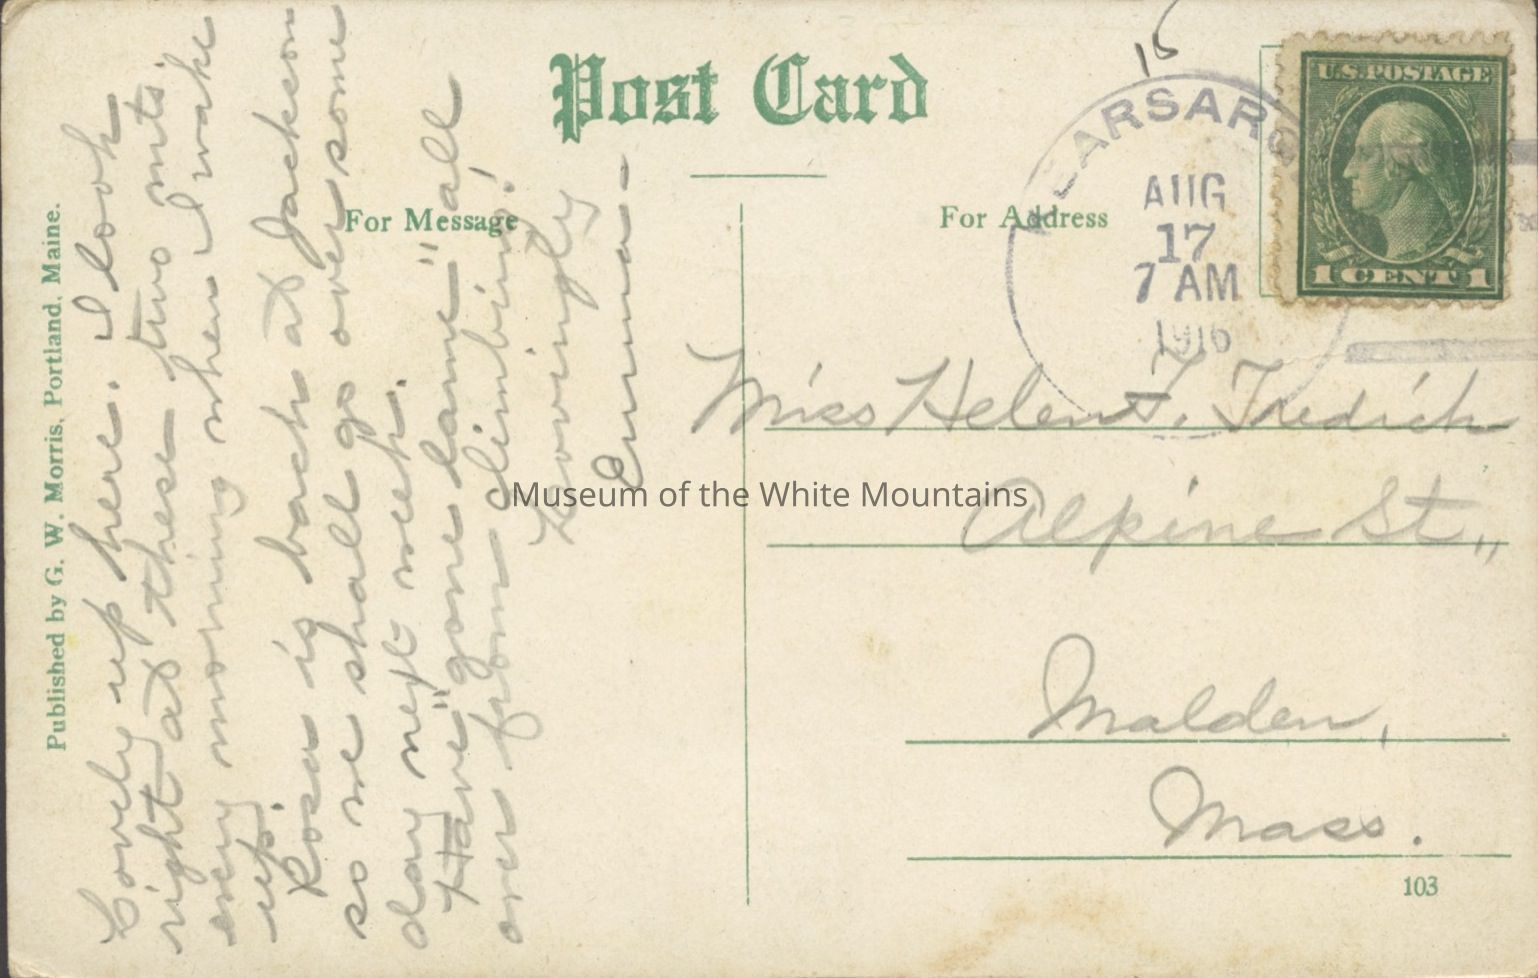 Post Card
For Message
For Address
Published by G. W. Morris, Portland, Maine.
Lovely up here. I look
right at these two mts.
every morning when I wake
up.
Rosa is back at Jackson
so we shall go over some
day next week.
Have "gone lame" all
over from climbing!
Lovingly
Emma-
15
EARSARG
AUG
17
7 AM
1916
U.S. POSTAGE
1 CENT 1
Miss Helen T. Tredich
Alpine St.,
Malden,
Mass.
103
Museum of the White Mountains